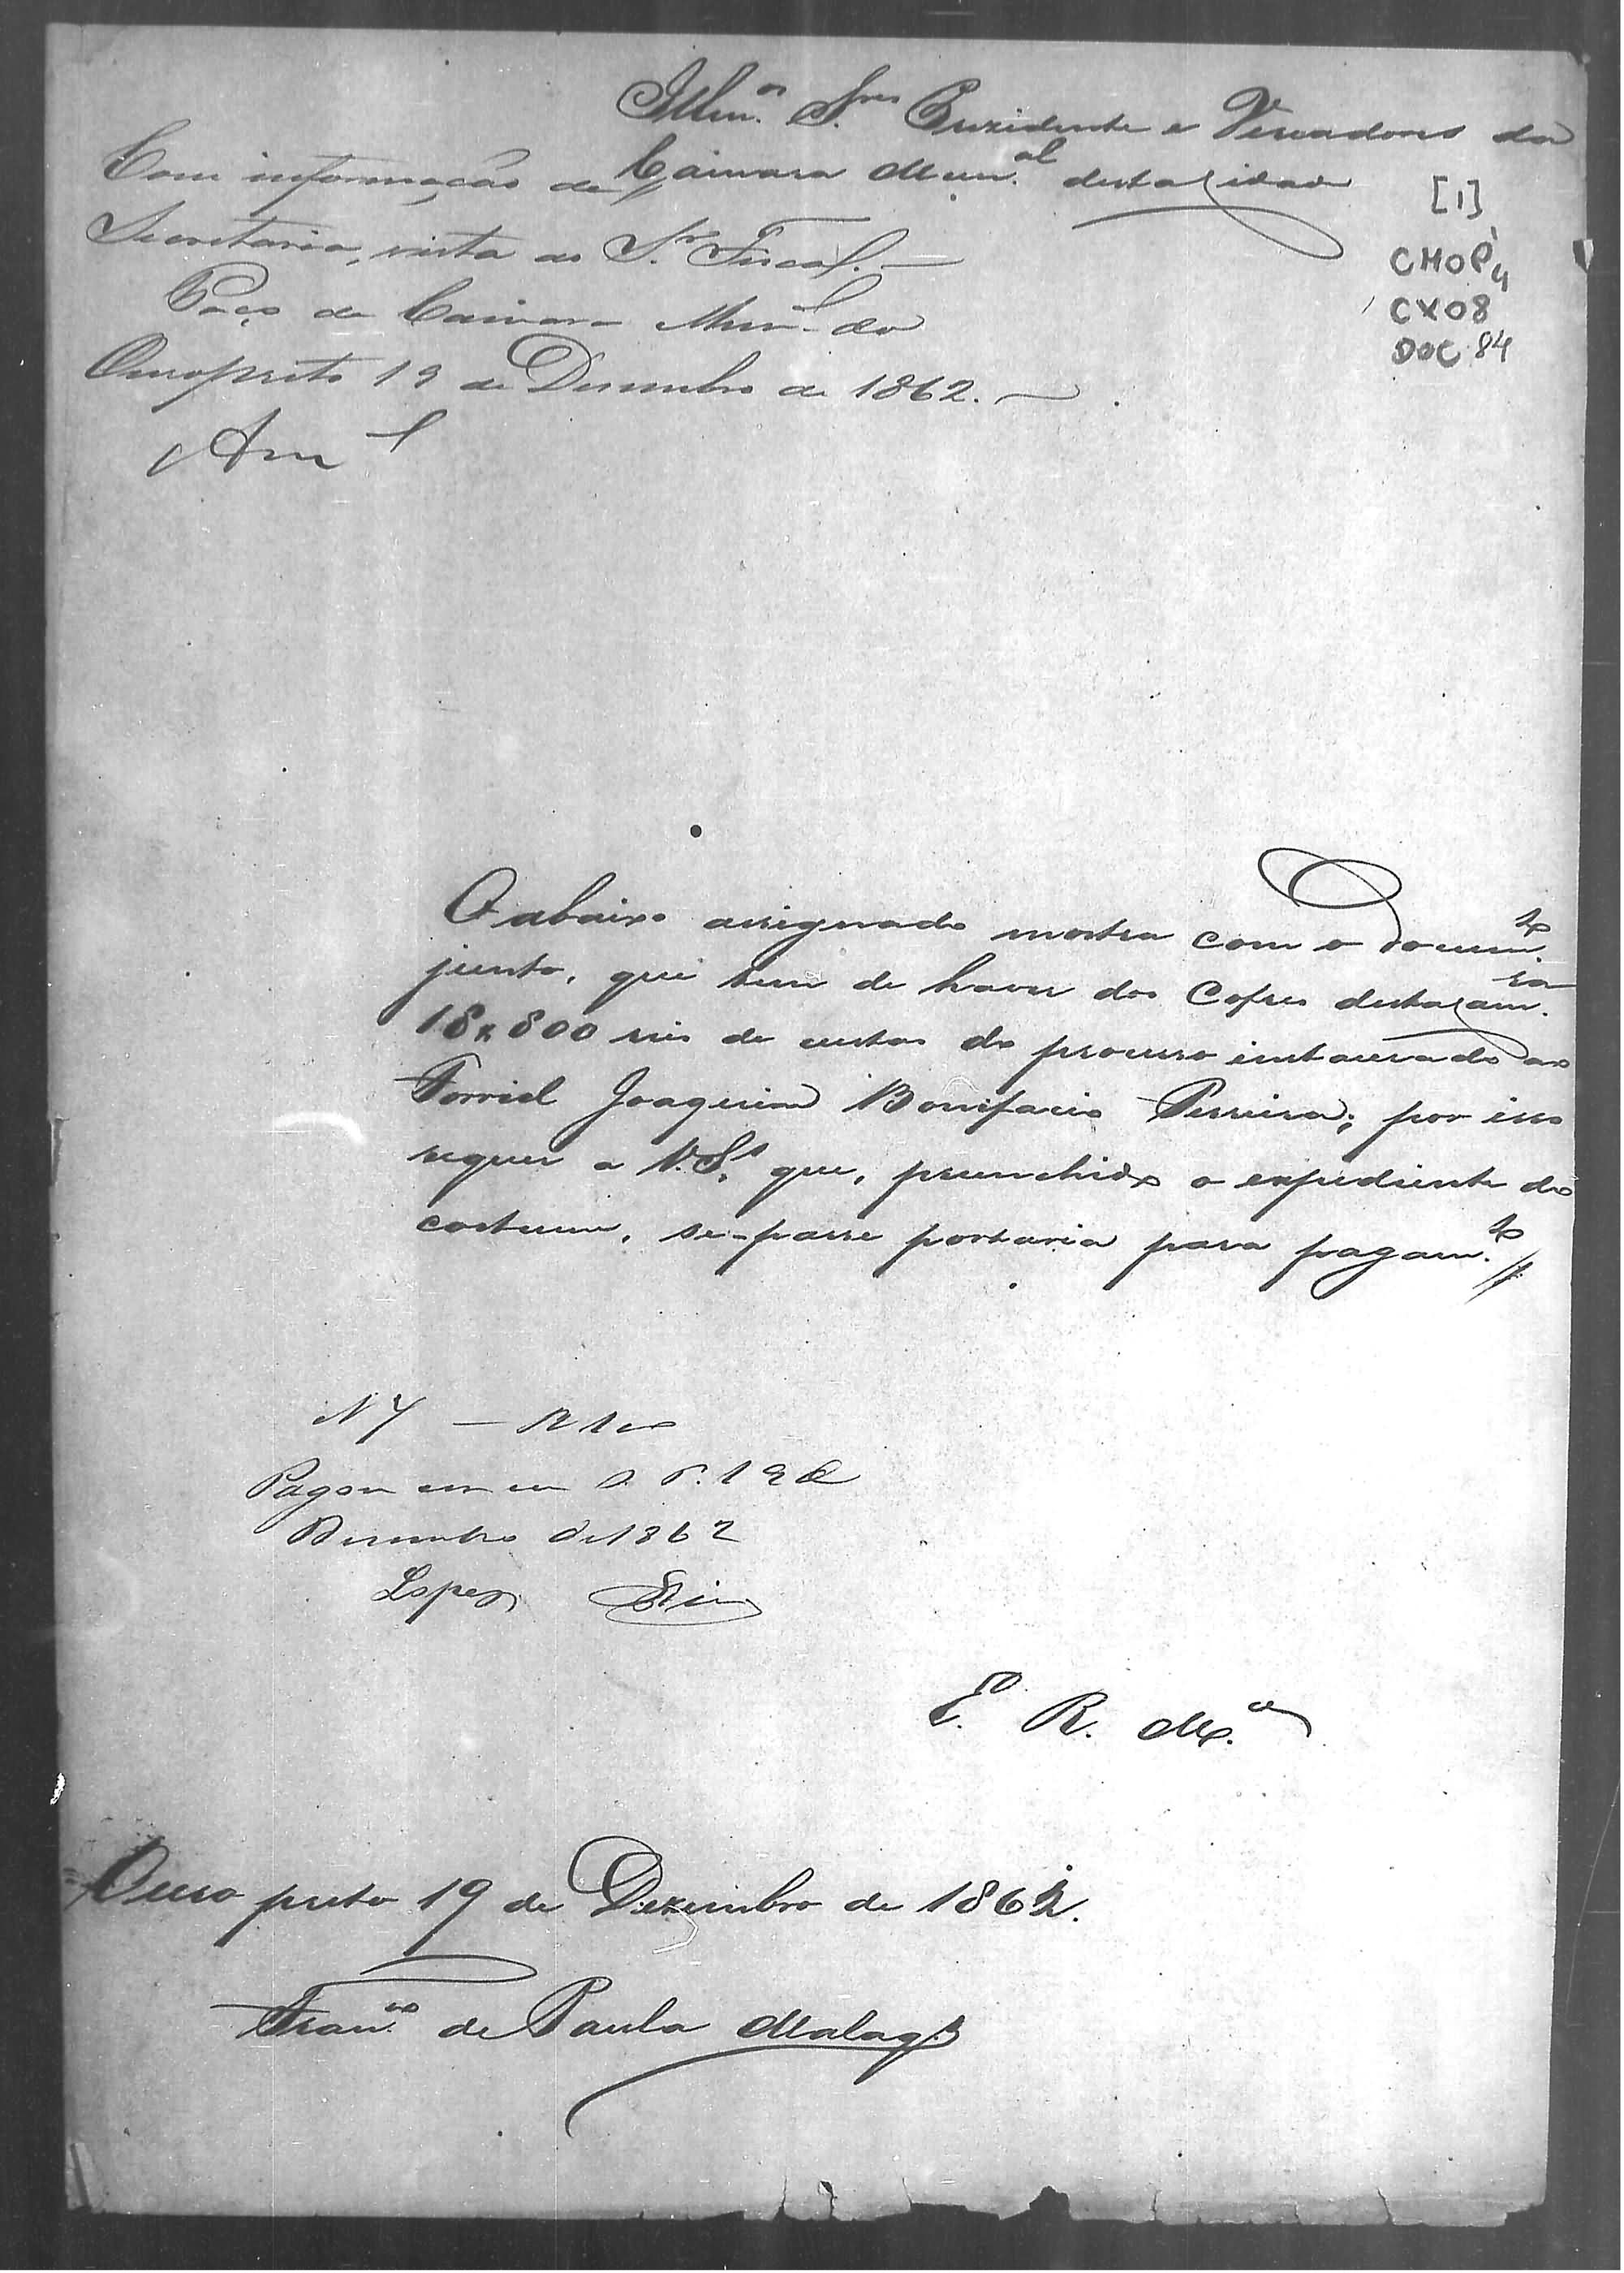 Illm.os Sres Prezidente e Vereadores da
Camara Mun.al desta Cidade
Com informação da
Secretaria, vista ao Sr. Fiscal.—
Paço da Camara Munal do
Ouropreto 19 de Dezembro de 1862.—
[1]
CMOP
CX08
DOC 84
O abaixo assignado mostra com o docum.to
junto, que tem de haver dos Cofres desta Cam.ra
18#800 reis de custas do processo instaurado ao
Forriel Joaquim Bonifacio Perreira; por isso
requer a V.Sas que, preenchido o expediente do
costume, se-passe portaria para pagam.to //
Pagou
Dezembro de 1862
Lopes
E. R. M.ce
Ouro preto 19 de Dezembro de 1862.
Fran.co de Paula Malag